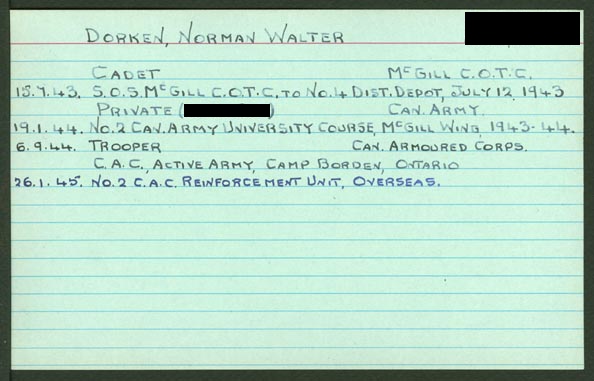 DORKEN, NORMAN WALTER
CADET McGILL C.O.T.C.
15.7.43. S.O.S. McGILL C.O.T.C. TO No.4 DIST. DEPOT, JULY 12, 1943
PRIVATE ( ) CAN. ARMY.
19.1.44. No.2 CAN. ARMY UNIVERSITY COURSE, McGILL WING, 1943-44.
6.9.44. TROOPER CAN. ARMOURED CORPS.
C.A.C., ACTIVE ARMY, CAMP BORDEN, ONTARIO
26.1.45. No.2 C.A.C. REINFORCEMENT UNIT, OVERSEAS.